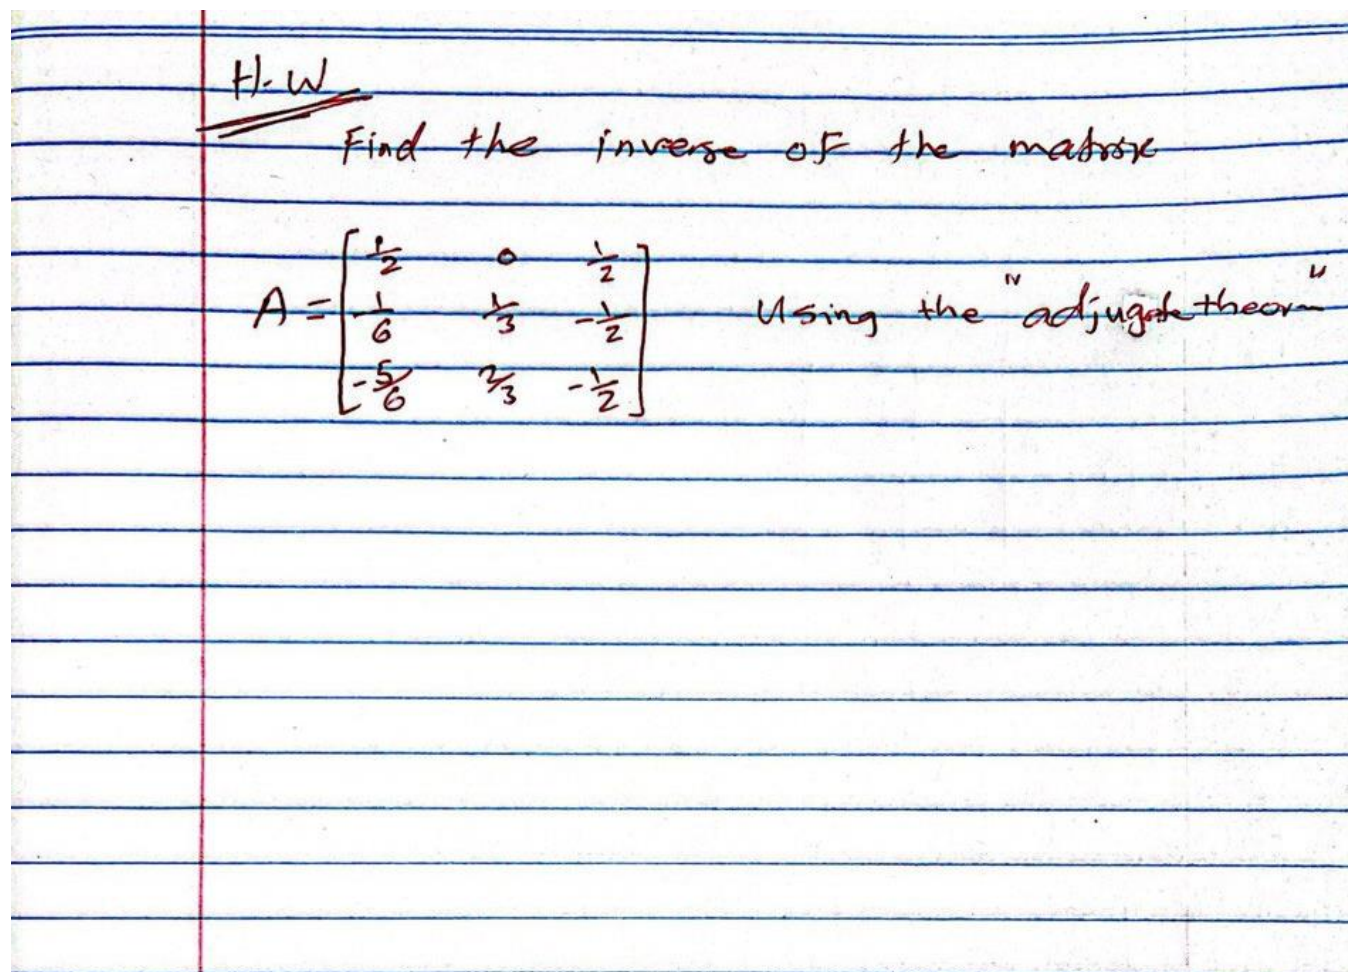 H.W
Find the inverse of the matrix
A = [ 1/2 0 1/2
-1/6 1/3 -1/2
-5/6 2/3 -1/2 ] Using the "adjugate theorm"